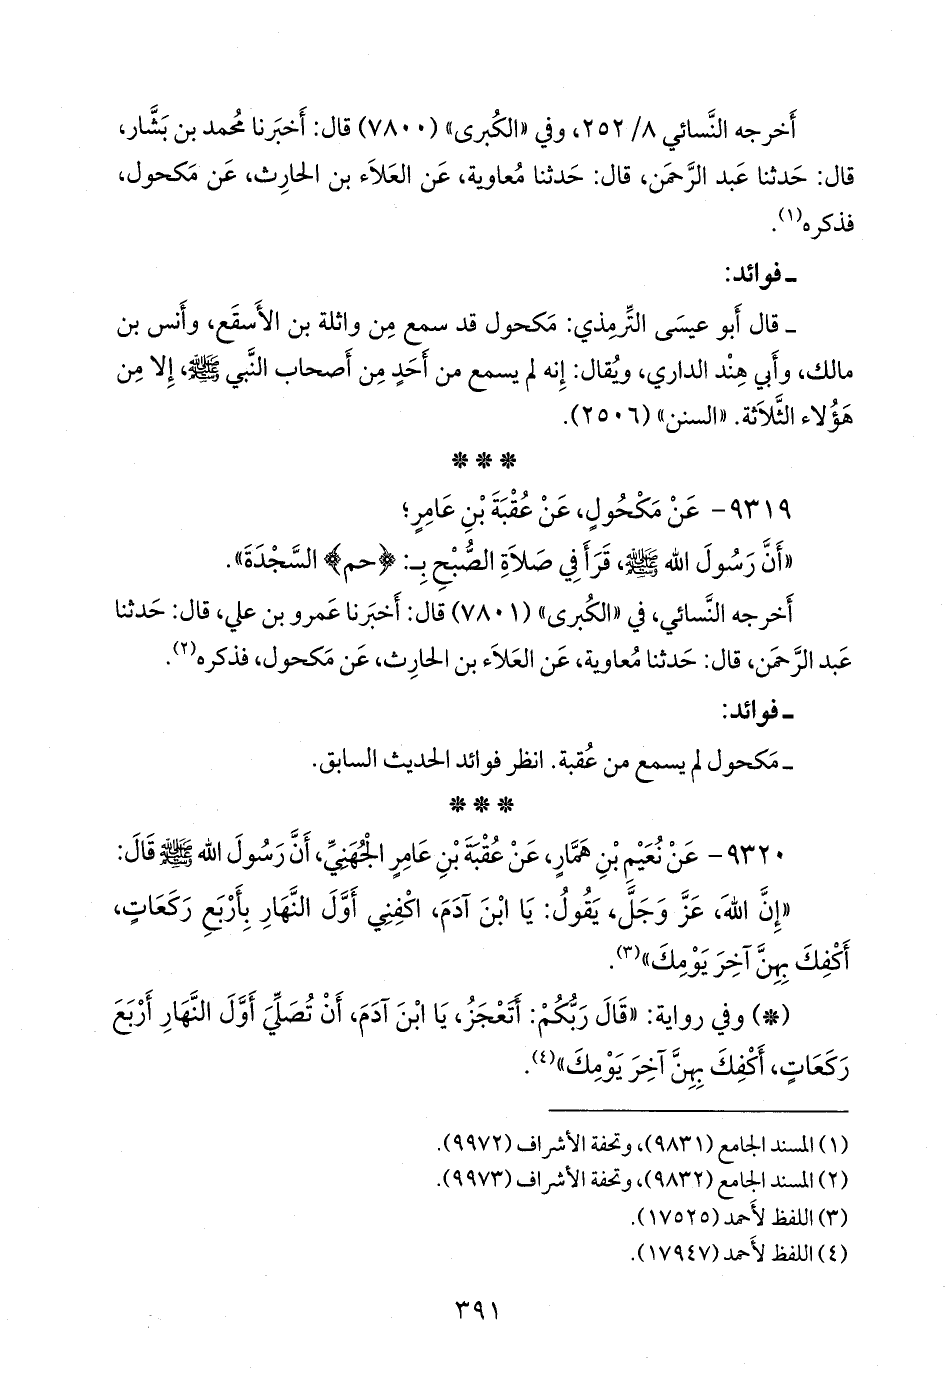 أَخرجه النَّسائي ٨/ ٢٥٢، وفي «الكُبرى» (٧٨٠٠) قال: أَخبَرنا مُحمد بن بَشَّار،
قال: حَدثنا عَبد الرَّحمَن، قال: حَدثنا مُعاوية، عَن العَلاَء بن الحارِث، عَن مَكحول،
فذكره(١).
ـ فوائد:
ـ قال أَبو عيسَى التِّرمِذي: مَكحول قد سمع مِن واثلة بن الأَسقَع، وأَنس بن
مالك، وأَبي هِنْد الداري، ويُقال: إِنه لم يسمع من أَحَدٍ مِن أَصحاب النَّبي ﷺ، إِلا مِن
هَؤُلاء الثَّلاَثة. «السنن» (٢٥٠٦).
* * *
٩٣١٩- عَنْ مَكْحُولٍ، عَنْ عُقْبَةَ بْنِ عَامِرٍ؛
«أَنَّ رَسُولَ الله ﷺ، قَرَأَ فِي صَلاَةِ الصُّبْحِ بِـ: ﴿حم﴾ السَّجْدَةَ».
أَخرجه النَّسائي، في «الكُبرى» (٧٨٠١) قال: أَخبَرنا عَمرو بن علي، قال: حَدثنا
عَبد الرَّحمَن، قال: حَدثنا مُعاوية، عَن العَلاَء بن الحارِث، عَن مَكحول، فذكره(٢).
ـ فوائد:
ـ مَكحول لم يسمع من عُقبة. انظر فوائد الحديث السابق.
* * *
٩٣٢٠- عَنْ نُعَيْمِ بْنِ هَمَّارٍ، عَنْ عُقْبَةَ بْنِ عَامِرٍ الْجُهَنِيِّ، أَنَّ رَسُولَ الله ﷺ قَالَ:
«إِنَّ اللهَ، عَزَّ وَجَلَّ، يَقُولُ: يَا ابْنَ آدَمَ، اكْفِنِي أَوَّلَ النَّهَارِ بِأَرْبَعِ رَكَعَاتٍ،
أَكْفِكَ بِهِنَّ آخِرَ يَوْمِكَ»(٣).
(*) وفي رواية: «قَالَ رَبُّكُمْ: أَتَعْجَزُ، يَا ابْنَ آدَمَ، أَنْ تُصَلِّيَ أَوَّلَ النَّهَارِ أَرْبَعَ
رَكَعَاتٍ، أَكْفِكَ بِهِنَّ آخِرَ يَوْمِكَ»(٤).
(١) المسند الجامع (٩٨٣١)، وتحفة الأشراف (٩٩٧٢).
(٢) المسند الجامع (٩٨٣٢)، وتحفة الأشراف (٩٩٧٣).
(٣) اللفظ لأَحمد (١٧٥٢٥).
(٤) اللفظ لأَحمد (١٧٩٤٧).
٣٩١